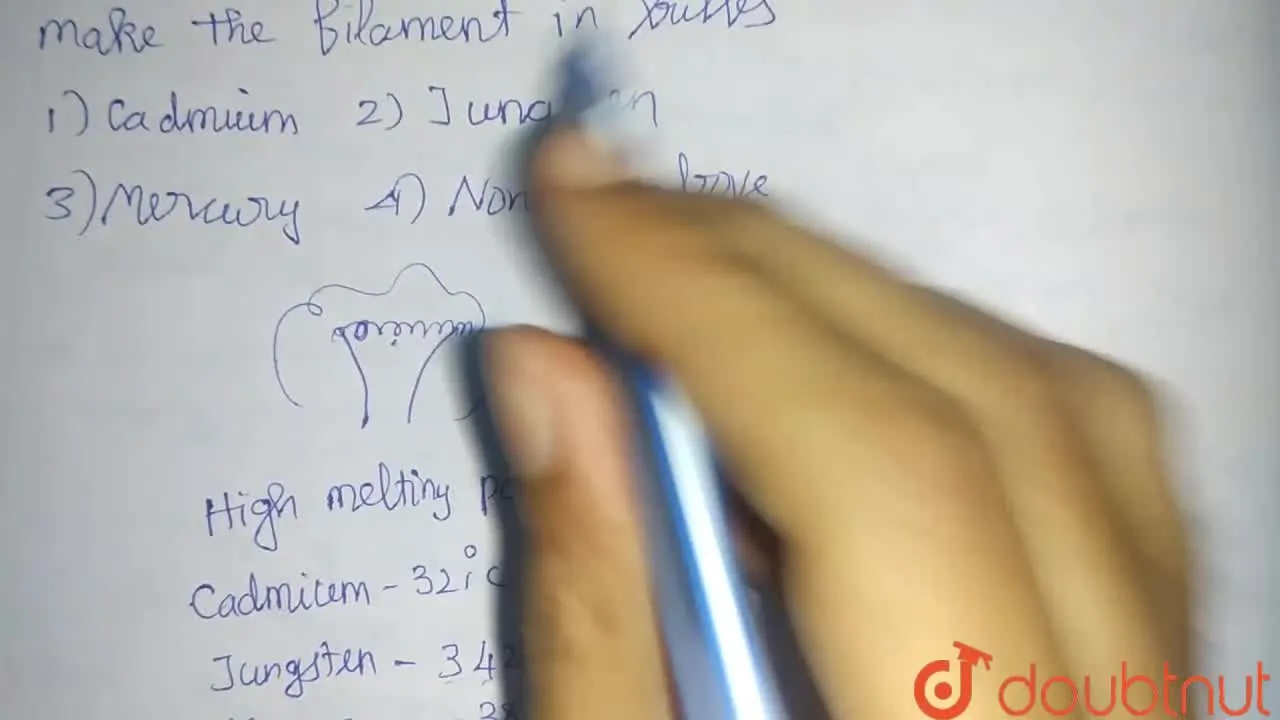 make the filament in bulbs
1) Cadmium 2) Tung en
3) Mercury 4) Non bove
High melting po
Cadmium - 321° C
Tungsten - 342
38
doubtnut